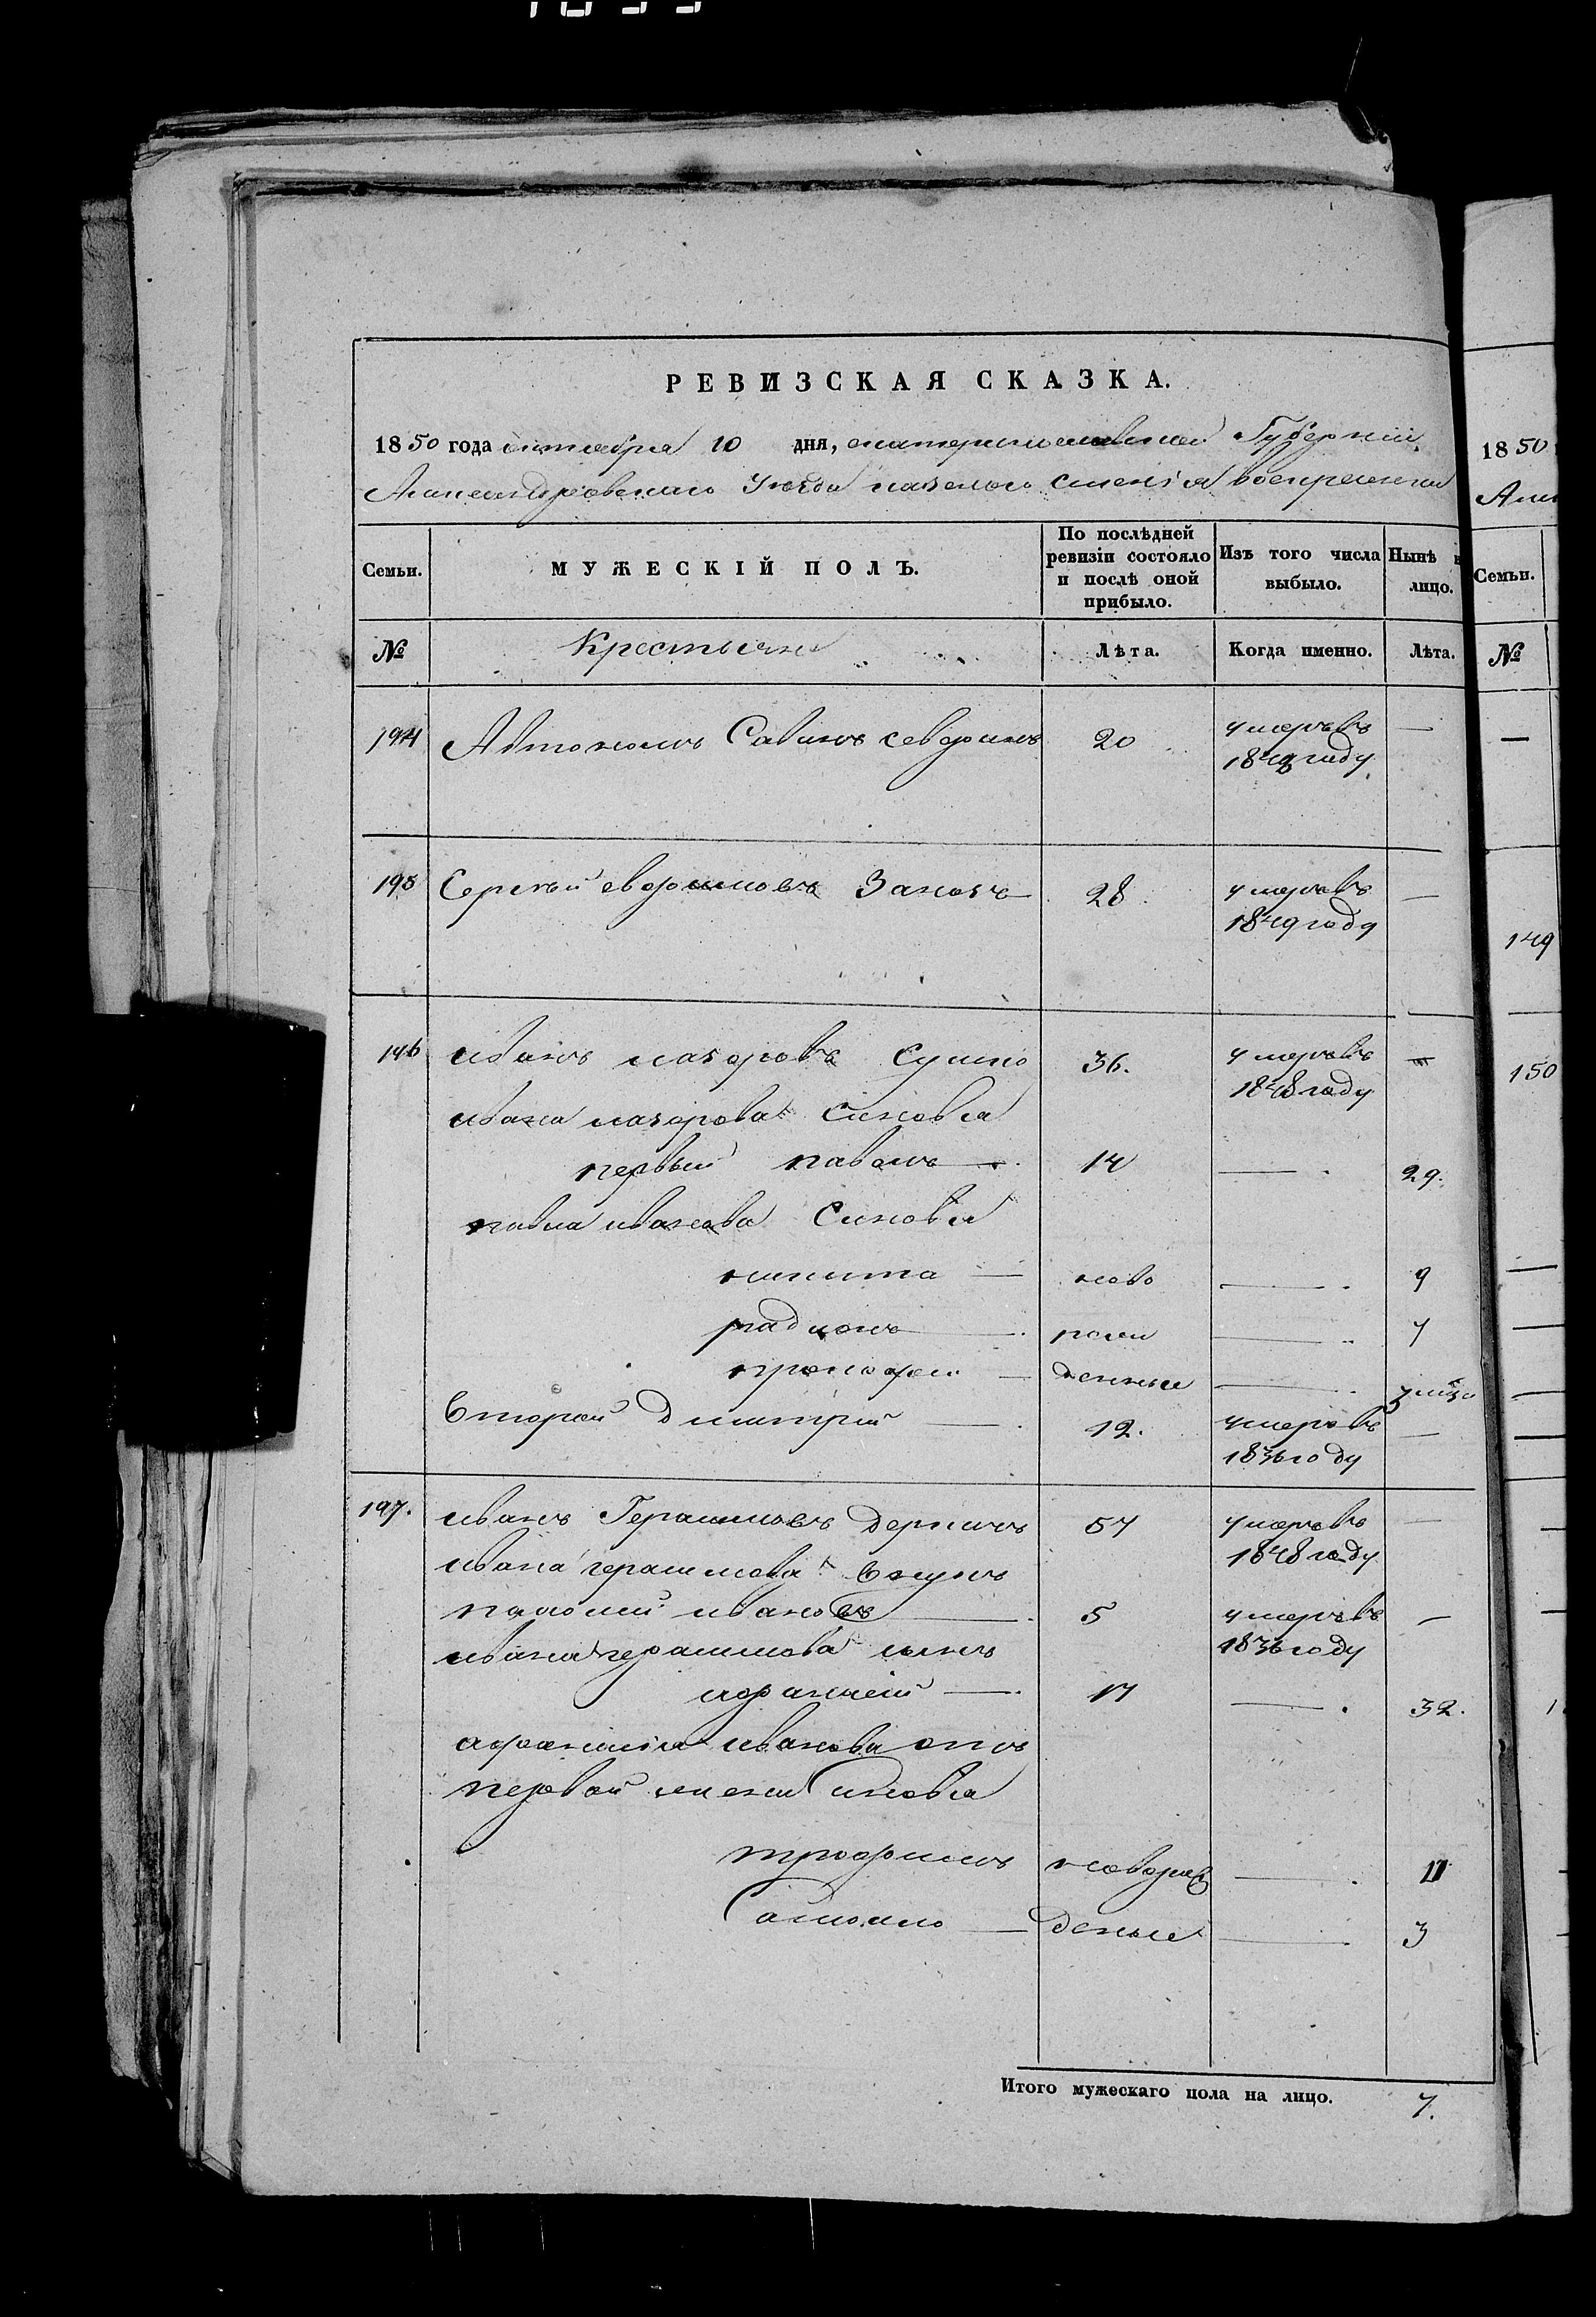 РЕВИЗСКАЯ СКАЗКА.
1850 года октября 10 дня, екатеринославской Губернии
Александровского уезда казеного селения
Семьи. МУЖЕСКІЙ ПОЛЪ. По послѣдней ревизіи состояло и послѣ оной прибыло. Изъ того числа выбыло. Нынѣ лицо.
№ Крестьяне Лѣта. Когда именно. Лѣта.
Автономъ Савинъ 20 умеръ въ —
году
Сергей 28 умеръ въ —
1849 году
146 иванъ назаровъ Сушко 36. умеръ въ —
1848 году
ивана назарова Синовья
первый павелъ — 14 — 29.
павла иванова Синовья
никита — ново — 9
радионъ — рож — 7
прокофей — денные —
Второй дмитрий — 12. умеръ въ —
1836 году
197. иванъ Герасимовъ 57 умеръ въ —
1848 году
ивана герасимова внукъ
ивановъ — 5 умеръ въ —
1836 году
ивана герасимова сынъ
афанасей — 17 — 32.
афанасия иванова отъ
первой жены Синовья
трофимъ новорож — 11
Самойло — денные — 3
Итого мужескаго пола на лицо. 7.
1850
Семьи.
№
—
149
150